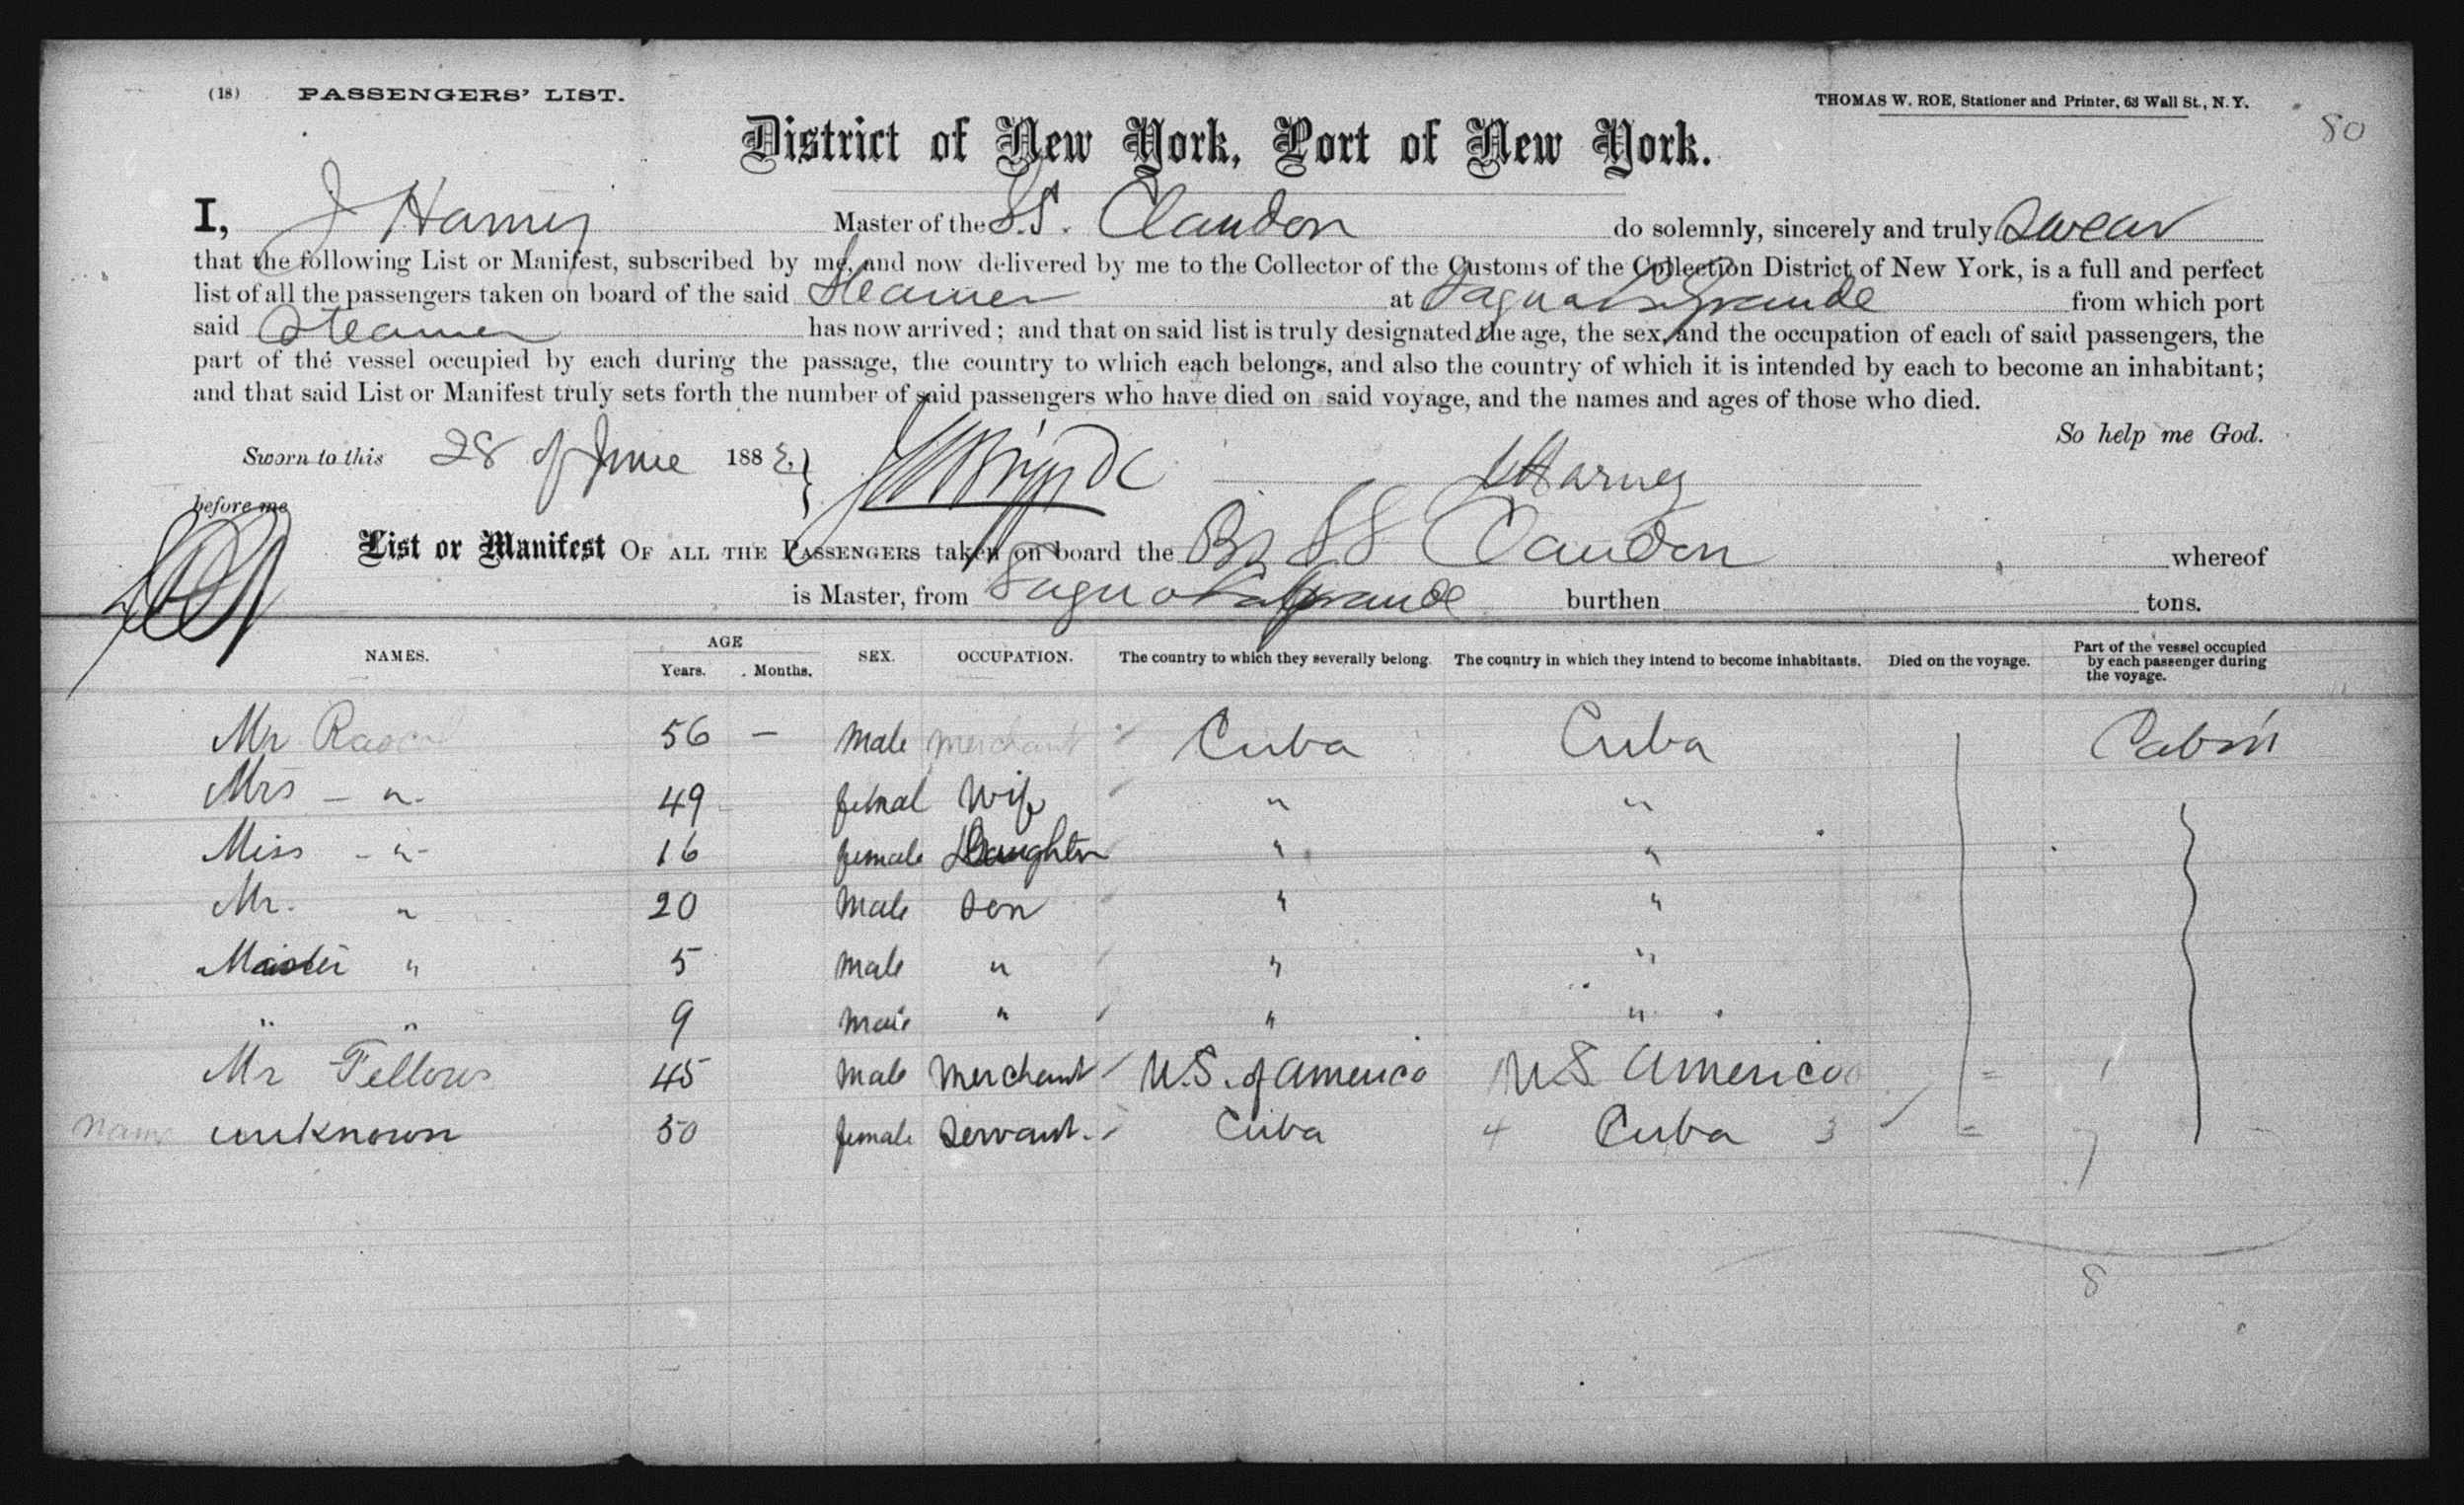 (18) PASSENGERS' LIST.
THOMAS W. ROE, Stationer and Printer, 63 Wall St., N.Y.
80
District of New York, Port of New York.
I, J Harney Master of the S.S. Claudon do solemnly, sincerely and truly Swear
that the following List or Manifest, subscribed by me, and now delivered by me to the Collector of the Customs of the Collection District of New York, is a full and perfect
list of all the passengers taken on board of the said Steamer at Sagua La Grande from which port
said Steamer has now arrived; and that on said list is truly designated the age, the sex, and the occupation of each of said passengers, the
part of the vessel occupied by each during the passage, the country to which each belongs, and also the country of which it is intended by each to become an inhabitant;
and that said List or Manifest truly sets forth the number of said passengers who have died on said voyage, and the names and ages of those who died.
So help me God.
Sworn to this 28 of June 188
J Harney
before me
List or Manifest OF ALL THE PASSENGERS taken on board the Br SS Claudon whereof
is Master, from Sagua La Grande burthen tons.
NAMES. AGE Years. Months. SEX. OCCUPATION. The country to which they severally belong. The country in which they intend to become inhabitants. Died on the voyage. Part of the vessel occupied by each passenger during the voyage.
Mr 56 — Male Merchant Cuba Cuba Cabin
Mrs — " - 49 femal Wife " "
Miss - " - 16 female Daughter " "
Mr. " 20 Male Son " "
Master " 5 Male " " "
" " 9 Male " " "
Mr Fellows 45 Male Merchant U.S. of America U.S. America = 1
Name unknown 50 female Servant. Cuba 4 Cuba 3 = 7
8